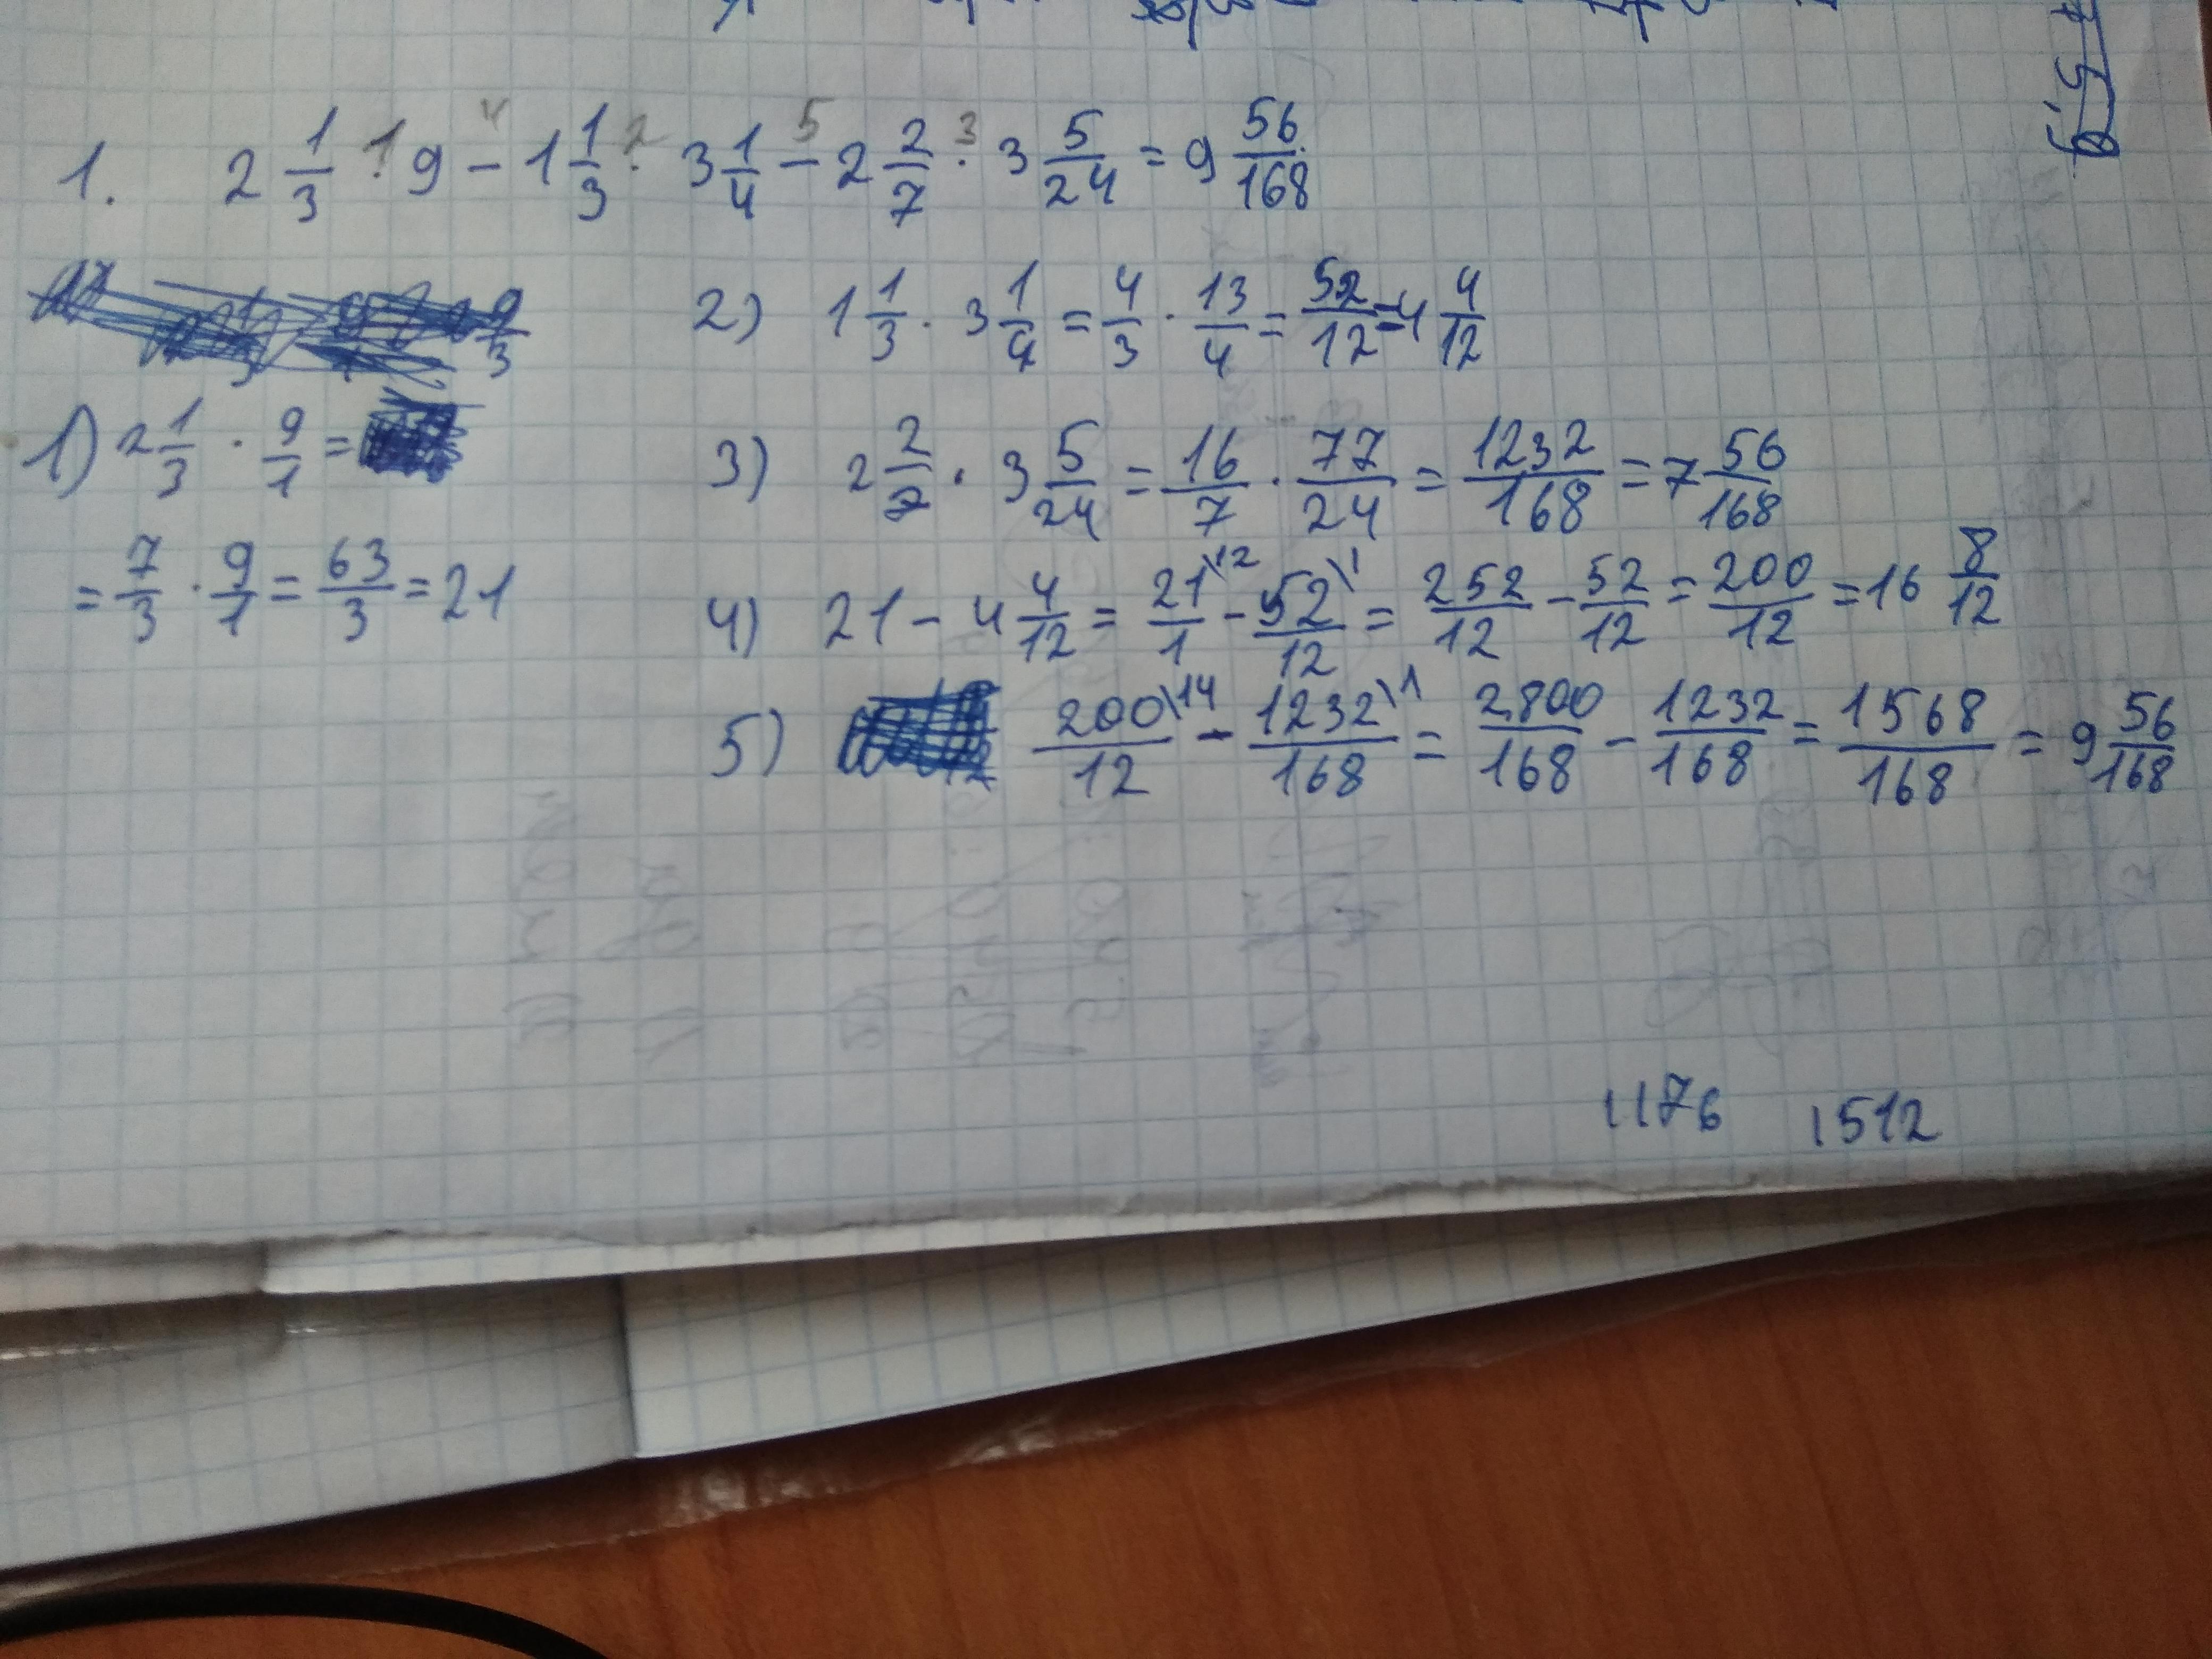 1. 2 1/3 · 9 - 1 1/3 · 3 1/4 - 2 2/7 · 3 5/24 = 9 56/168
1 4 2 5 3
1) 2 1/3 · 9/1 =
= 7/3 · 9/1 = 63/3 = 21
2) 1 1/3 · 3 1/4 = 4/3 · 13/4 = 52/12 = 4 4/12
3) 2 2/7 · 3 5/24 = 16/7 · 77/24 = 1232/168 = 7 56/168
4) 21 - 4 4/12 = 21/1 \12 - 52/12 \1 = 252/12 - 52/12 = 200/12 = 16 8/12
5) 200/12 \14 - 1232/168 \1 = 2800/168 - 1232/168 = 1568/168 = 9 56/168
1176 1512